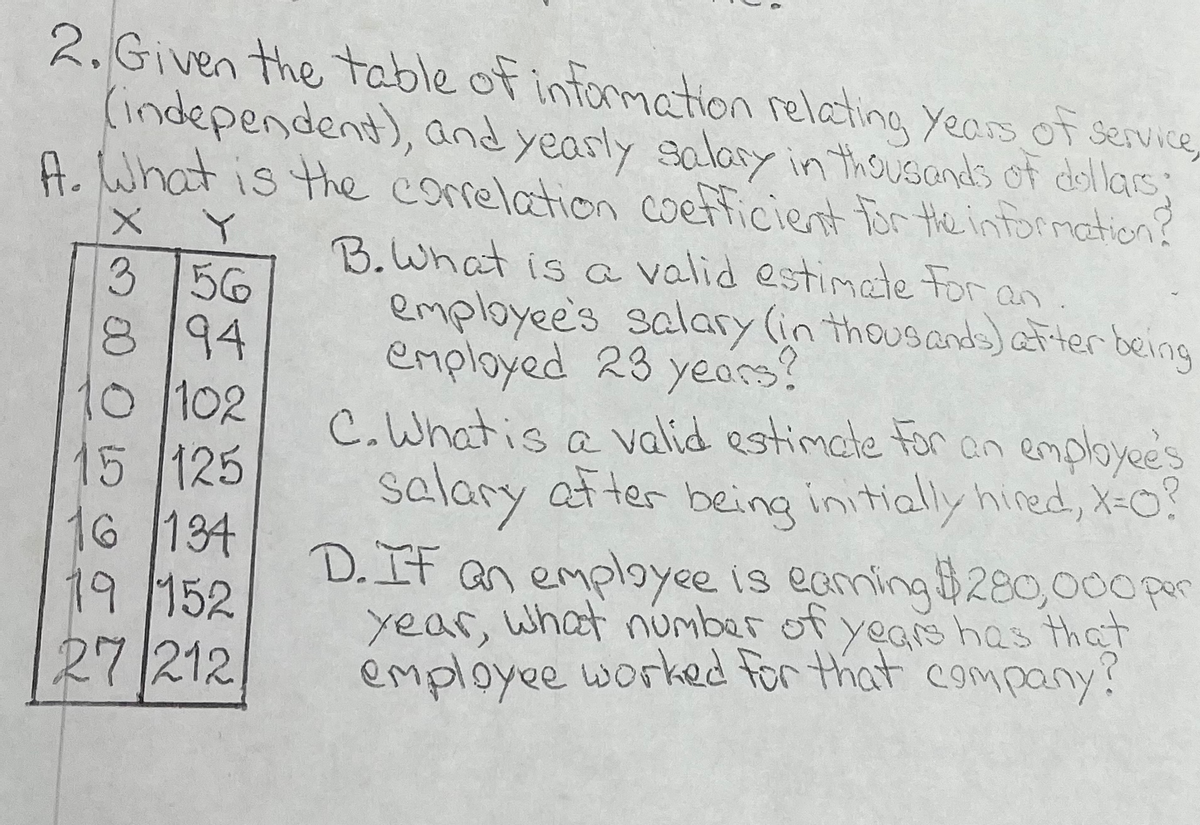 2. Given the table of information relating years of service,
(independent), and yearly salary in thousands of dollars;
A. What is the correlation coefficient for the information?
X Y
3 56
8 94
10 102
15 125
16 134
19 152
27 212
B. What is a valid estimate for an
employee's salary (in thousands) after being
employed 23 years?
C. What is a valid estimate for an employee's
salary after being initially hired, X=0?
D. If an employee is earning $280,000 per
year, what number of years has that
employee worked for that company?